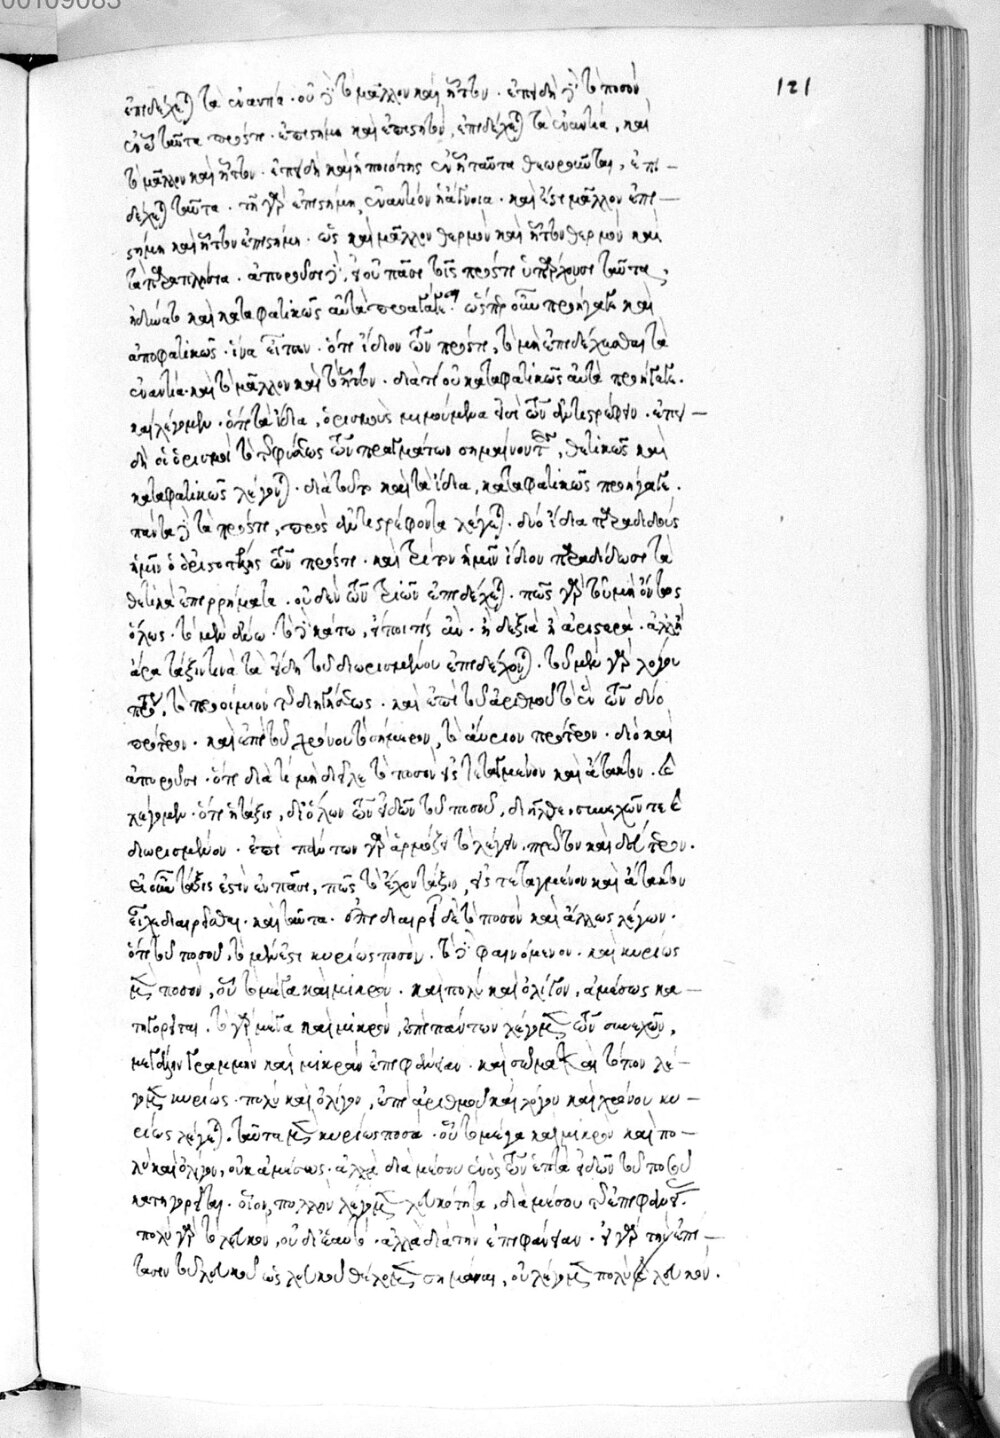 00109083
121
ἐπιδέχεται τὰ ἐναντία. οὐ δὲ τὸ μᾶλλον καὶ ἧττον. ἐπειδὴ δὲ τὸ ποσὸν
ταῦτα πρός τι. ἐπιστήμη καὶ ἐπιστητὸν, ἐπιδέχεται τὰ ἐναντία, καὶ
τὸ μᾶλλον καὶ ἧττον. ἐπειδὴ καὶ ἡ ποιότης ἐν ᾗ ταῦτα θεωροῦνται, ἐπι-
δέχεται ταῦτα. τῇ γὰρ ἐπιστήμῃ, ἐναντίον ἡ ἄγνοια. καὶ ἔστι μᾶλλον ἐπι-
στήμη καὶ ἧττον ἐπιστήμη. ὡς καὶ μᾶλλον θερμὸν καὶ ἧττον θερμὸν καὶ
τὰ παραπλήσια. ἀποροῦσι δὲ, εἰ οὐ πᾶσι τοῖς πρός τι ὑπάρχουσι ταῦτα,
ἠδύνατο καὶ καταφατικῶς αὐτὰ ὥσπερ οὖν προήγαγε καὶ
ἀποφατικῶς. ἵνα εἴπῃ. ὅτι ἴδιον τῶν πρός τι, τὸ μὴ ἐπιδέχεσθαι τὰ
ἐναντία. καὶ τὸ μᾶλλον καὶ τὸ ἧττον. διατί οὐ καταφατικῶς αὐτὰ προήγαγε.
καὶ λέγομεν. ὅτι τὰ ἴδια, ὁρισμοὺς μιμούμενα ἐπὶ τῶν ἀντιστρέφειν. ἐπει-
δὴ οἱ ὁρισμοὶ τὰς φύσεις τῶν πραγμάτων σημαίνοντες, θετικῶς καὶ
καταφατικῶς λέγονται. διὰ τοῦτο καὶ τὰ ἴδια, καταφατικῶς προήγαγε.
πάντα δὲ τὰ πρός τι, πρὸς ἀντιστρέφοντα λέγεται. δύο ἴδια παραδιδοὺς
ἡμῖν ὁ ἀριστοτέλης τῶν πρός τι. καὶ τρίτον ἡμῖν ἴδιον παραδίδωσι τὰ
θετικὰ ἐπιρρήματα. οὐδὲν τῶν τριῶν ἐπιδέχεται. πῶς γὰρ τοῦ μὴ ὄντος
ὅλως. τὸ μὲν ἄνω. τὸ δὲ κάτω, εἴποι τις ἄν. ἢ δεξιὰ ἢ ἀριστερά. ἀλλ'
ἆρα τάξιν τινὰ τὰ εἴδη τοῦ διωρισμένου ἐπιδέχονται. τοῦ μὲν γὰρ λόγου
πρῶτον, τὸ προοίμιον τῆς διηγήσεως. καὶ ἐπὶ τοῦ ἀριθμοῦ τὸ ἓν τῶν δύο
πρότερον. καὶ ἐπὶ τοῦ χρόνου τὸ σήμερον, τὸ αὔριον πρότερον. διὸ καὶ
ἀποροῦσι. ὅτι διὰ τί μὴ διεῖλε τὸ ποσὸν εἰς τεταγμένον καὶ ἄτακτον. καὶ
λέγομεν. ὅτι ἡ τάξις, δι' ὅλων τῶν εἰδῶν τοῦ ποσοῦ, διῆλθε, συνεχῶν τε καὶ
διωρισμένου. ἐπὶ πάντων γὰρ ἁρμόζει τὸ λέγειν. πρῶτον καὶ δεύτερον.
εἰ οὖν τάξις ἐστὶν ἐν πᾶσι, πῶς τὸ ἔχον τάξιν, εἰς τεταγμένον καὶ ἄτακτον
εἶχε διαιρεῖσθαι. καὶ ταῦτα. ἐπιδιαιρεῖ δὲ τὸ ποσὸν καὶ ἄλλως λέγων.
ὅτι τοῦ ποσοῦ, τὸ μέν ἐστι κυρίως ποσόν. τὸ δὲ φαινόμενον. καὶ κυρίως
μὲν ποσὸν, οὗ τὸ μέγα καὶ μικρὸν. καὶ πολὺ καὶ ὀλίγον, ἀμέσως κα-
τηγορεῖται. τὸ γὰρ μέγα καὶ μικρὸν, ἐπὶ πάντων λέγομεν τῶν συνεχῶν,
μεγάλην γραμμὴν καὶ μικρὰν ἐπιφάνειαν. καὶ σώματα καὶ τόπον λέ-
γομεν κυρίως. πολὺ καὶ ὀλίγον, ἐπὶ ἀριθμοῦ καὶ λόγου καὶ χρόνου κυ-
ρίως λέγεται. ταῦτα μὲν κυρίως ποσά. οὗ τὸ μέγα καὶ μικρὸν καὶ πο-
λὺ καὶ ὀλίγον, οὐκ ἀμέσως. ἀλλὰ διὰ μέσου ἑνὸς τῶν ἑπτὰ εἰδῶν τοῦ ποσοῦ
κατηγορεῖται. οἷον, πολλὴν λέγομεν λευκότητα, διὰ μέσου τῆς ἐπιφανείας.
πολὺ γὰρ τὸ λευκὸν, οὐ δι' ἑαυτό. ἀλλὰ διὰ τὴν ἐπιφάνειαν. εἰ γὰρ τὴν ἐπί-
τασιν τοῦ λευκοῦ ὡς λευκοῦ θέλομεν σημᾶναι, οὐ λέγομεν πολὺ λευκόν.